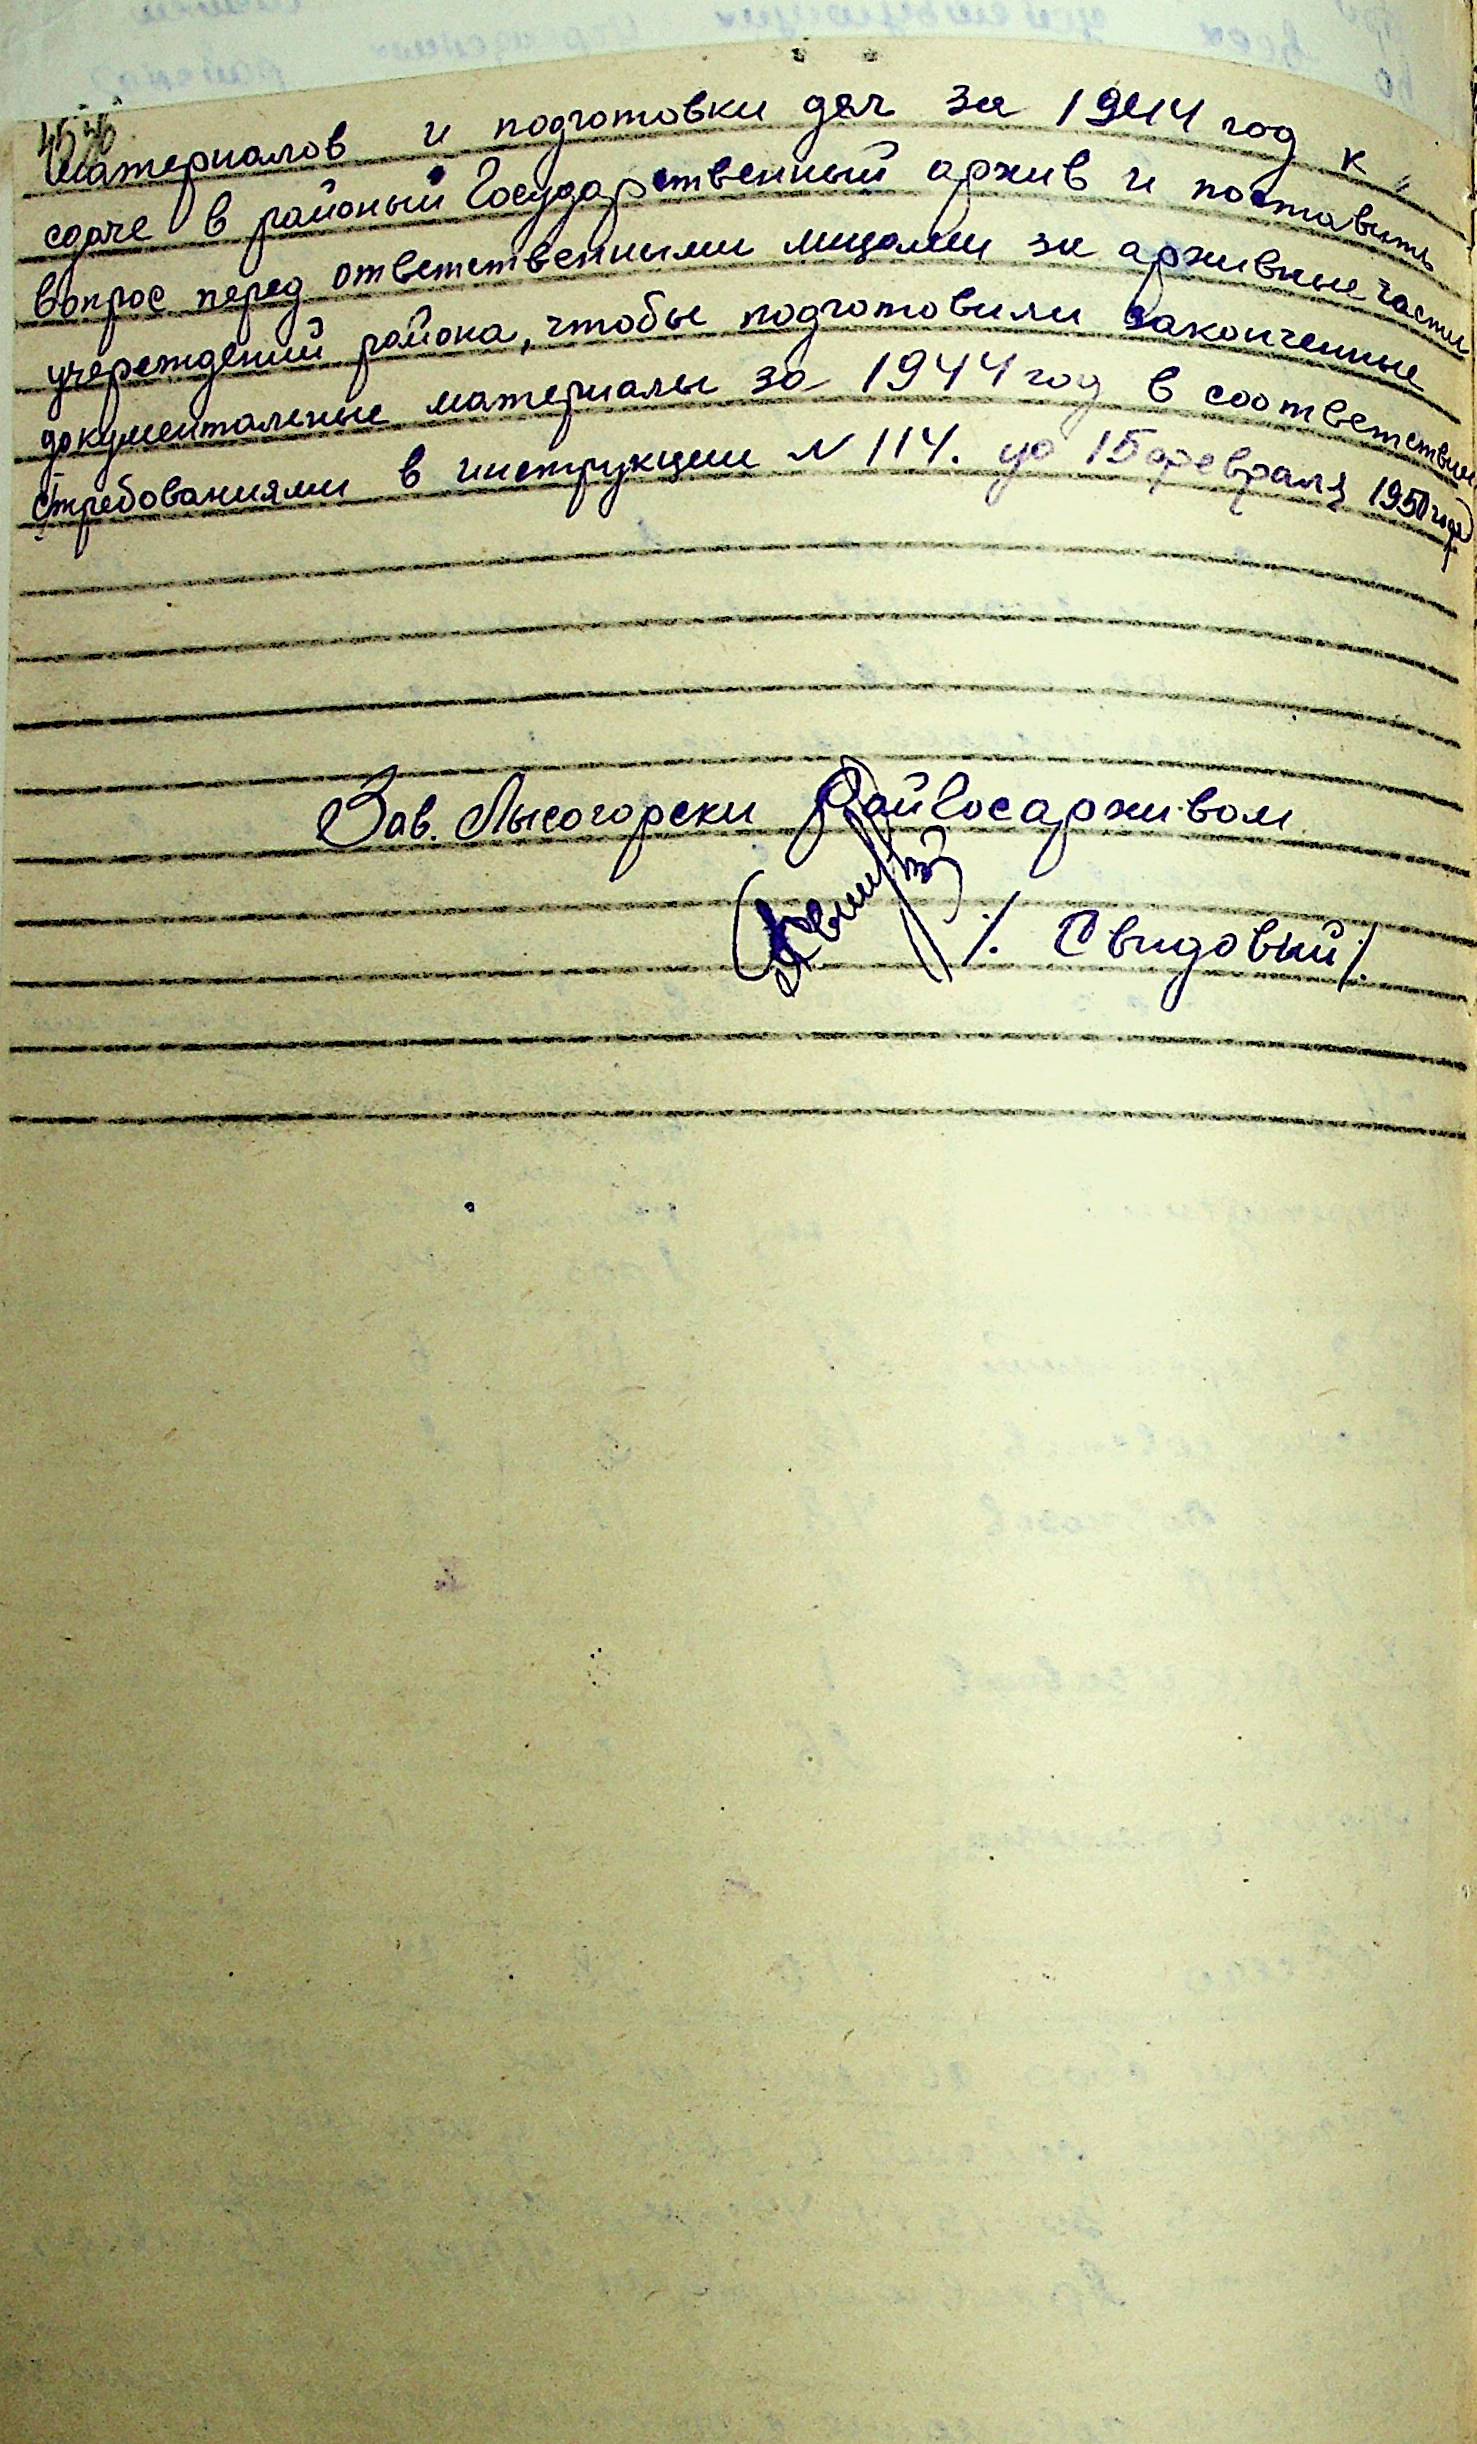 материалов и подготовки дел за 1944 год к
сдаче в районый Государственный архив и поставить
вопрос перед ответственными лицами за архивные части
учереждений района, чтобы подготовили законченные
документальные материалы за 1944 год в соответствии
с требованиями в инструкции N 114. до 15 февраля 1950 года
Зав. Лысогорски РайГосархивом
/. Свидовый /.